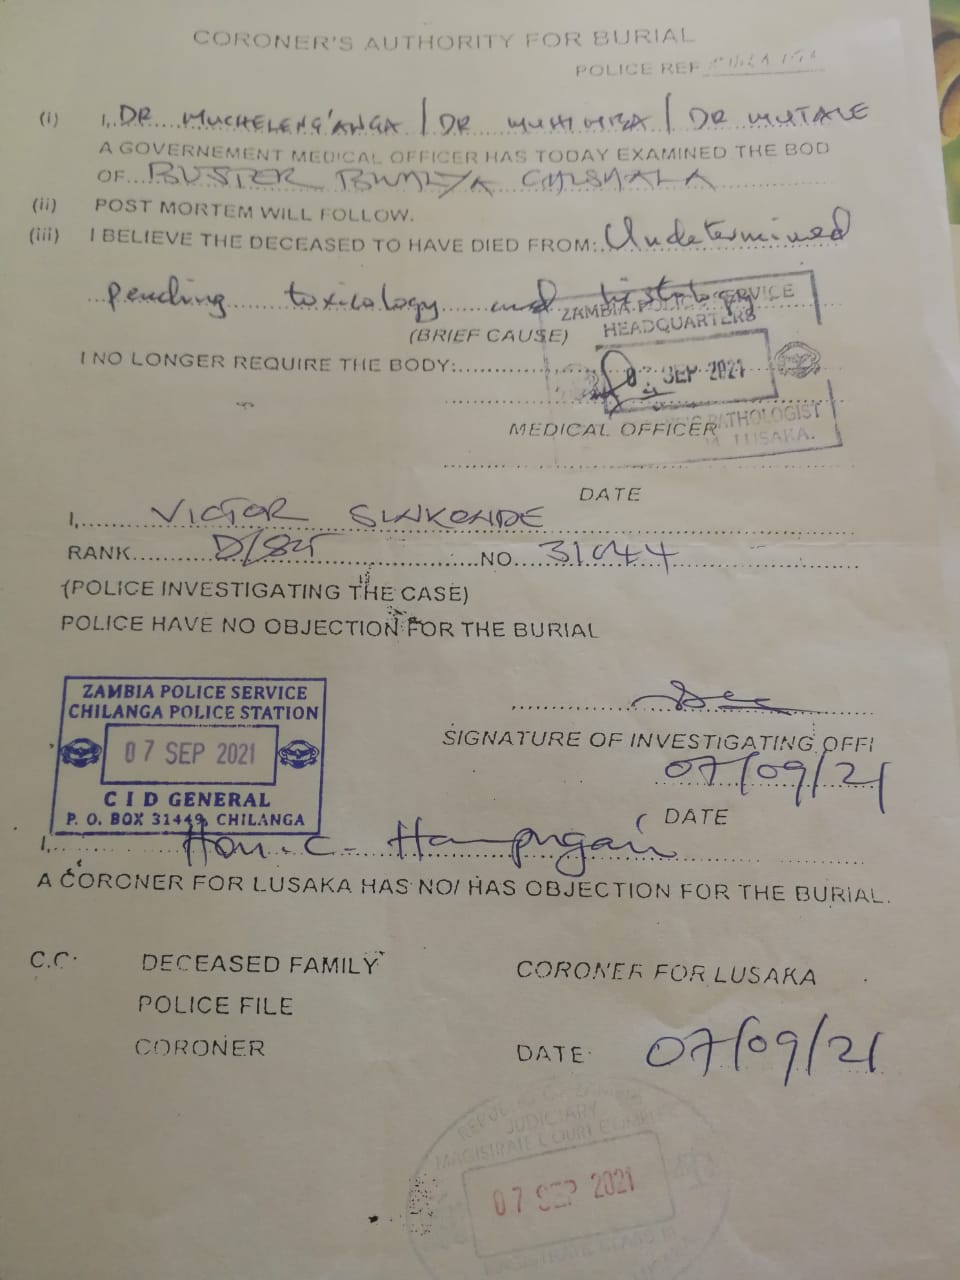 CORONER'S AUTHORITY FOR BURIAL
POLICE REF
(i) I, DR MUCHELENG'ANGA / DR MUHIMBA / DR MUTALE
A GOVERNEMENT MEDICAL OFFICER HAS TODAY EXAMINED THE BOD
OF BUSTER BWALYA CHISHALA
(ii) POST MORTEM WILL FOLLOW.
(iii) I BELIEVE THE DECEASED TO HAVE DIED FROM: Undetermined
pending toxicology and histology
(BRIEF CAUSE)
ZAMBIA POLICE SERVICE
HEADQUARTERS
SEP 2021
PATHOLOGIST
LUSAKA.
I NO LONGER REQUIRE THE BODY:
MEDICAL OFFICER
DATE
I, VICTOR SINKONDE
RANK D/SGT NO. 31044
(POLICE INVESTIGATING THE CASE)
POLICE HAVE NO OBJECTION FOR THE BURIAL
ZAMBIA POLICE SERVICE
CHILANGA POLICE STATION
07 SEP 2021
C I D GENERAL
P. O. BOX 31449, CHILANGA
SIGNATURE OF INVESTIGATING OFFI
07/09/21
DATE
I, Hon. C.
A CORONER FOR LUSAKA HAS NO/ HAS OBJECTION FOR THE BURIAL.
C.C. DECEASED FAMILY
POLICE FILE
CORONER
CORONER FOR LUSAKA
DATE 07/09/21
JUDICIARY
MAGISTRATE COURT
07 SEP 2021
MAGISTRATE CLASS III